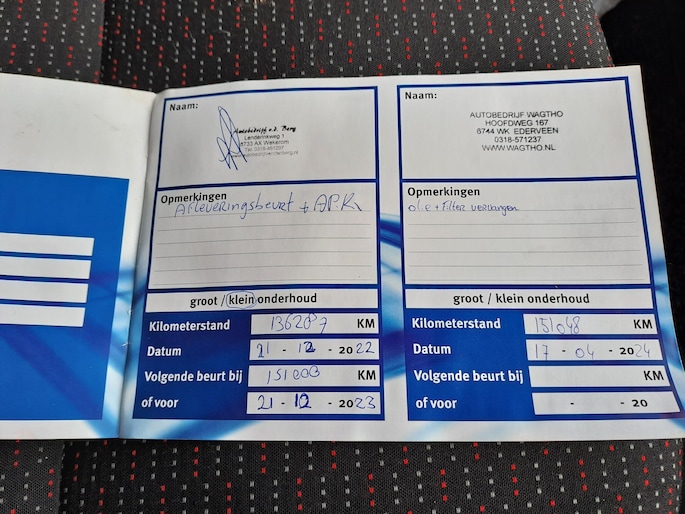 Naam:
Autobedrijf v.d. Berg
Lenderinkweg 1
6733 AX Wekerom
Tel. 0318-461207
Opmerkingen
Afleveringsbeurt + APK
groot / klein onderhoud
Kilometerstand 136287 KM
Datum 21 - 12 - 2022
Volgende beurt bij 151000 KM
of voor 21 - 12 - 2023
Naam:
AUTOBEDRIJF WAGTHO
HOOFDWEG 167
6744 WK EDERVEEN
0318-571237
WWW.WAGTHO.NL
Opmerkingen
olie + filter vervangen
groot / klein onderhoud
Kilometerstand 151048 KM
Datum 17 - 04 - 2024
Volgende beurt bij KM
of voor - - 20